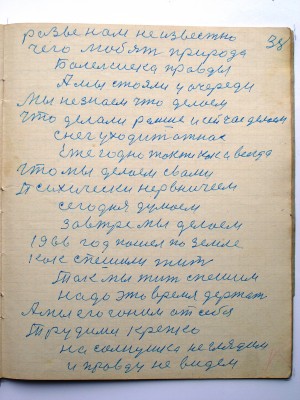 разве нам неизвестно
38
чего любят природа
Болельшека правды
А мы стояли у очереди
Мы не знаем что делаем
что делали раньше и сейчас делаем
снег уходит от нас
Ежегодно так как и всегда
что мы делаем с вами
Психически нервничеем
сегодня думаем
завтре мы делаем
1966 год пошел по земле
Как спешили жит
Так мы жит спешим
надо эта время держат
А мы его гоним от себя
Трудими крепко
на солнушка не глядим
и правду не видем